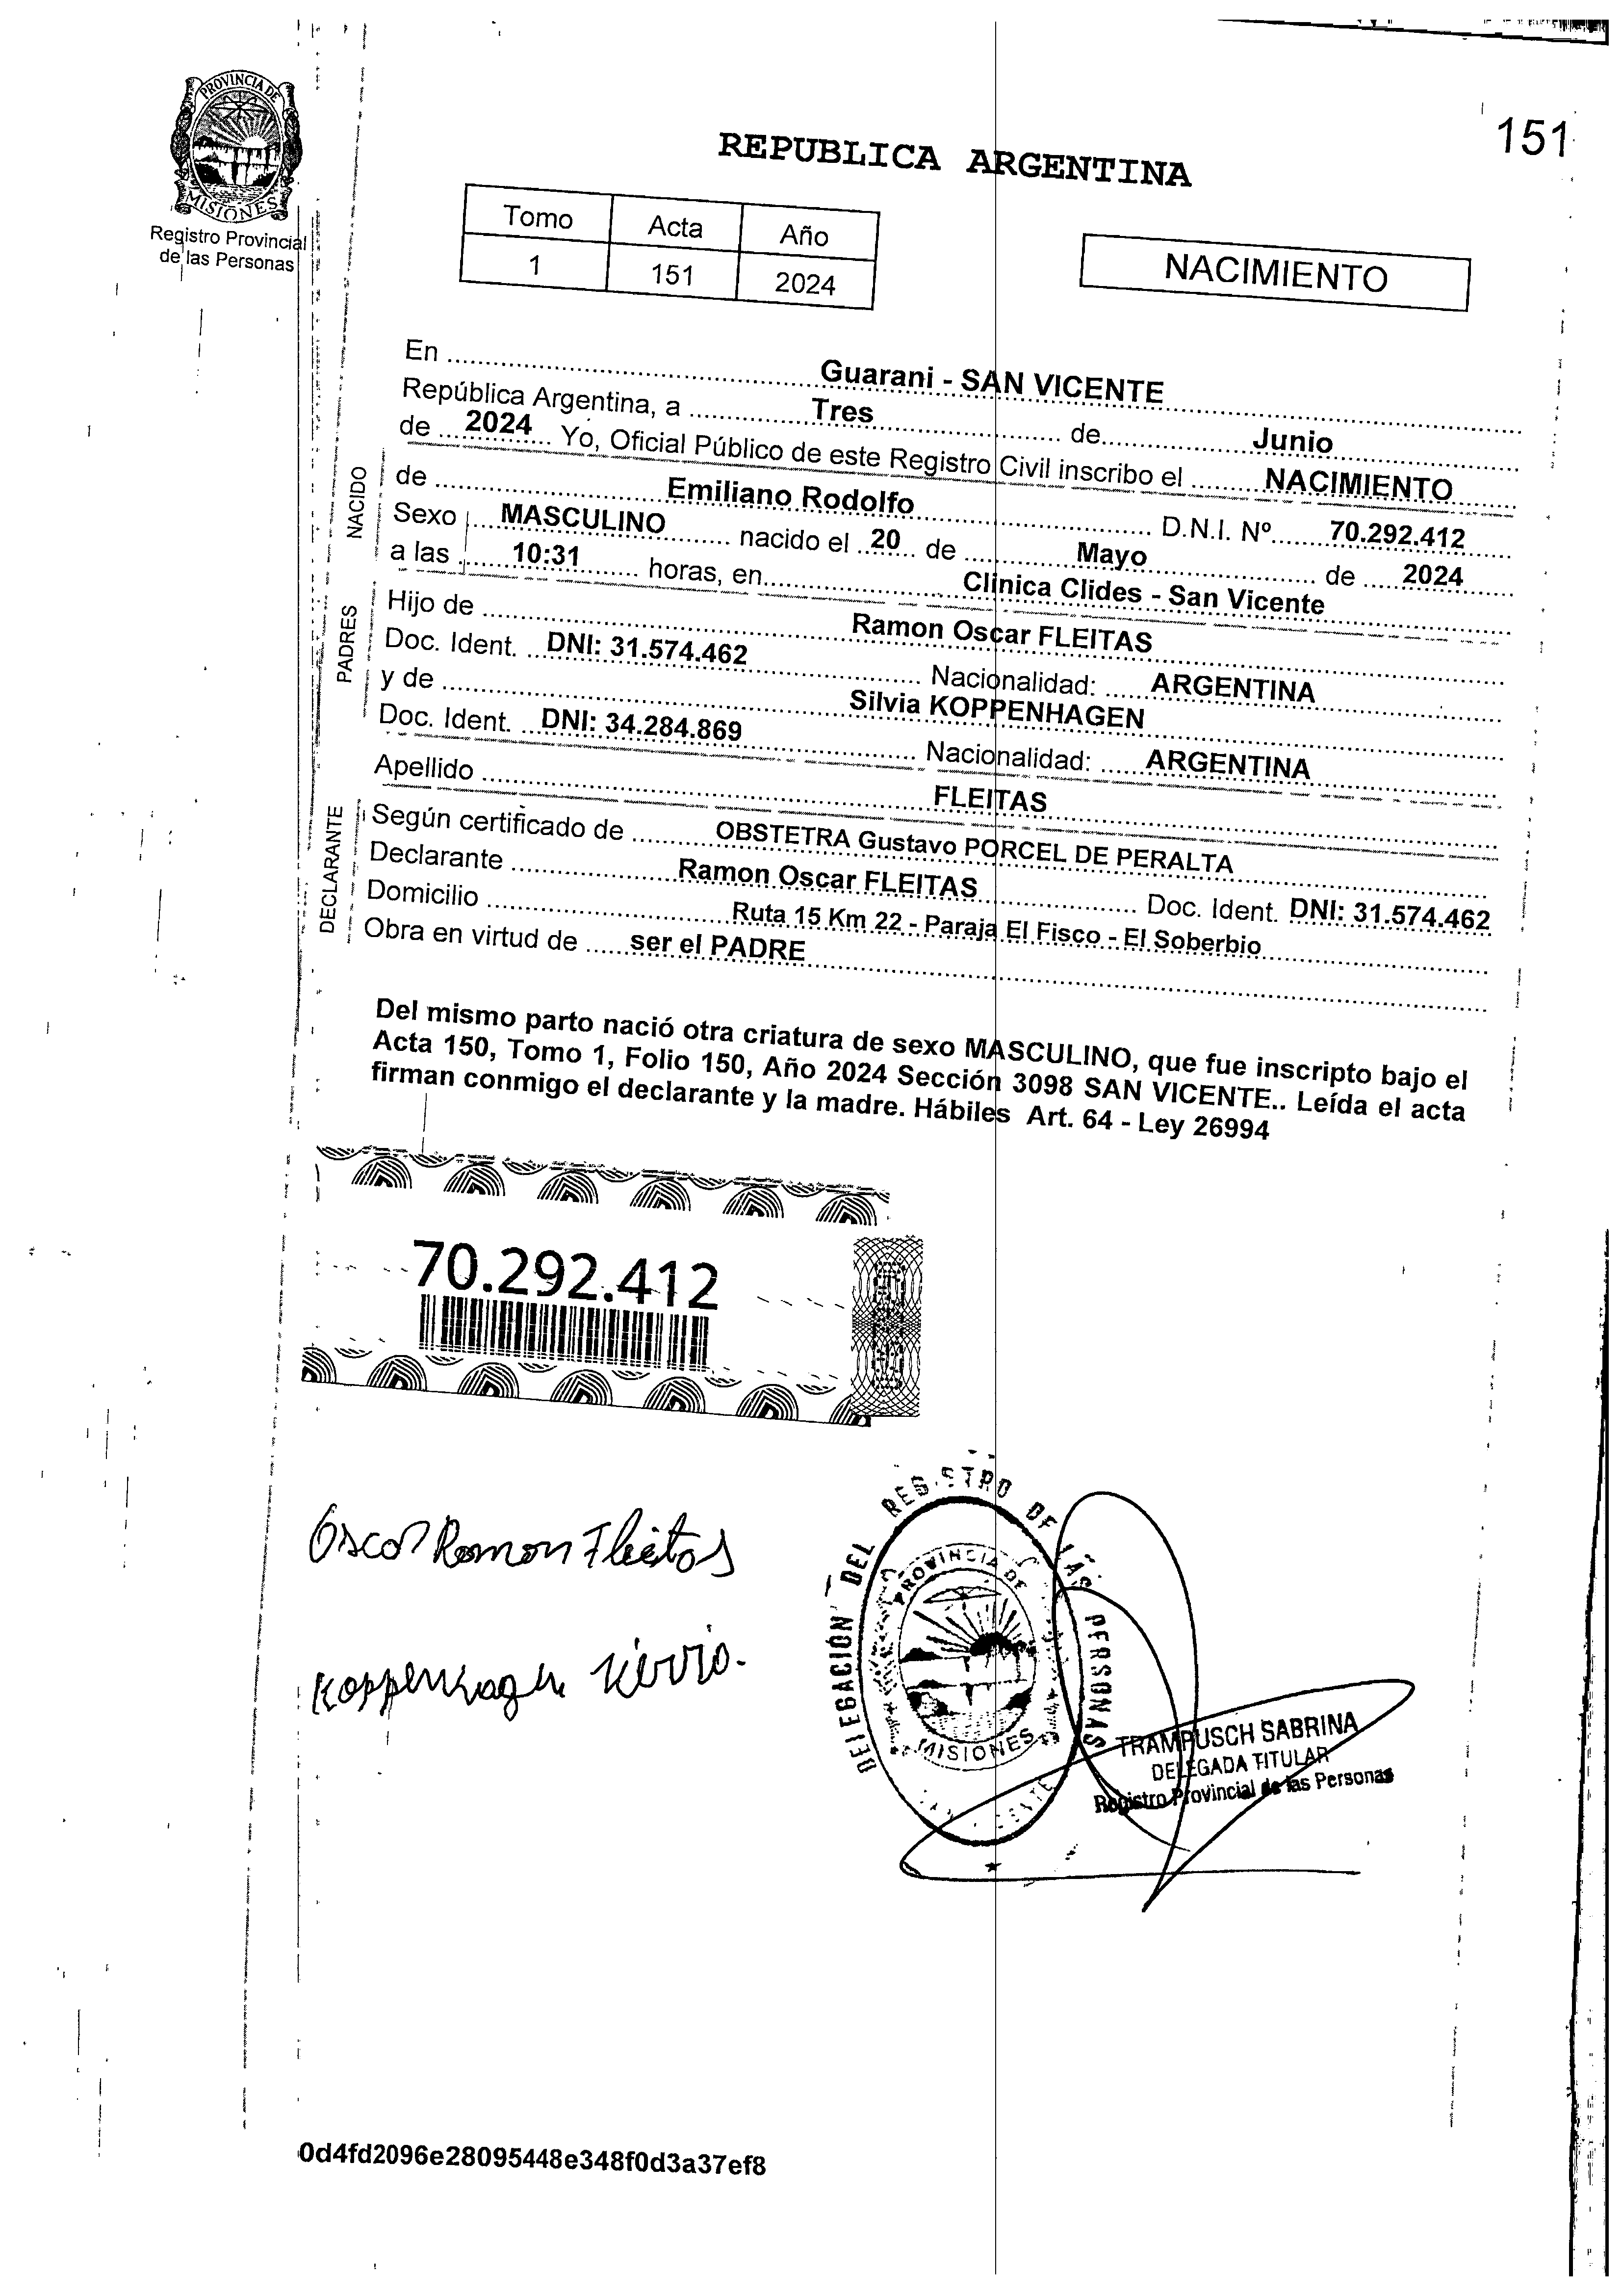 151
PROVINCIA DE
MISIONES
Registro Provincial
de las Personas
REPUBLICA ARGENTINA
Tomo Acta Año
1 151 2024
NACIMIENTO
En Guarani - SAN VICENTE
República Argentina, a Tres de Junio
de 2024 Yo, Oficial Público de este Registro Civil inscribo el NACIMIENTO
NACIDO
de Emiliano Rodolfo D.N.I. Nº 70.292.412
Sexo MASCULINO nacido el 20 de Mayo de 2024
a las 10:31 horas, en Clinica Clides - San Vicente
PADRES
Hijo de Ramon Oscar FLEITAS
Doc. Ident. DNI: 31.574.462 Nacionalidad: ARGENTINA
y de Silvia KOPPENHAGEN
Doc. Ident. DNI: 34.284.869 Nacionalidad: ARGENTINA
Apellido FLEITAS
DECLARANTE
Según certificado de OBSTETRA Gustavo PORCEL DE PERALTA
Declarante Ramon Oscar FLEITAS Doc. Ident. DNI: 31.574.462
Domicilio Ruta 15 Km 22 - Paraja El Fisco - El Soberbio
Obra en virtud de ser el PADRE
Del mismo parto nació otra criatura de sexo MASCULINO, que fue inscripto bajo el
Acta 150, Tomo 1, Folio 150, Año 2024 Sección 3098 SAN VICENTE.. Leída el acta
firman conmigo el declarante y la madre. Hábiles Art. 64 - Ley 26994
70.292.412
Oscar Ramon Fleitas
Koppenhagen
DELEGACIÓN DEL REGISTRO DE LAS PERSONAS
PROVINCIA DE
MISIONES
TRAMPUSCH SABRINA
DELEGADA TITULAR
Registro Provincial de las Personas
0d4fd2096e28095448e348f0d3a37ef8